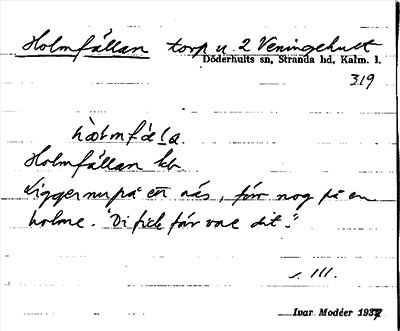 Holmfällan torp u. 2 Veningehult
Döderhults sn, Stranda hd, Kalm. l.
319
hòlmfàla.
Holmfällan kb
Ligger nu på en näs, förr nog på en
holme. "Di fick får vae dit."
s. 111.
Ivar Modéer 1937